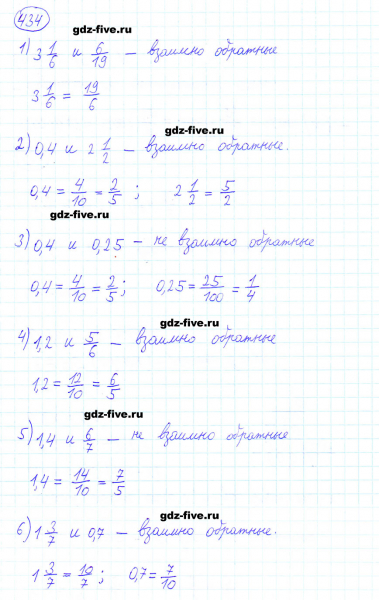 434
gdz-five.ru
1) 3 1/6 и 6/19 – взаимно обратные
3 1/6 = 19/6
gdz-five.ru
2) 0,4 и 2 1/2 – взаимно обратные.
0,4 = 4/10 = 2/5 ; 2 1/2 = 5/2
gdz-five.ru
3) 0,4 и 0,25 – не взаимно обратные
0,4 = 4/10 = 2/5 ; 0,25 = 25/100 = 1/4
gdz-five.ru
4) 1,2 и 5/6 – взаимно обратные
1,2 = 12/10 = 6/5
gdz-five.ru
5) 1,4 и 6/7 – не взаимно обратные
1,4 = 14/10 = 7/5
gdz-five.ru
6) 1 3/7 и 0,7 – взаимно обратные.
1 3/7 = 10/7 ; 0,7 = 7/10
gdz-five.ru